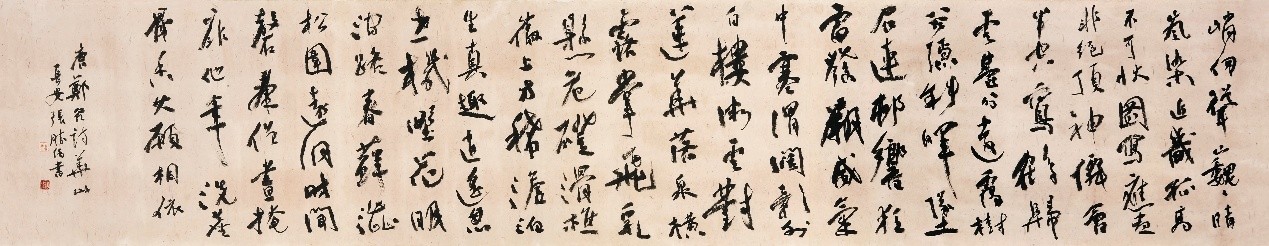 峭仞聳巍巍晴
嵐染近畿孤高
不可狀圖寫應盡
非絕頂神僊會
半空鸞鶴歸
雲臺分遠靄樹
谷隱斜暉墜
石連邨響狂
雷發廟威氣
中寒渭闊影外
白樓微雲對
蓮華落泉橫
露掌飛乳
懸危磴滑樵
徹上方稀澹泊
生真趣逍遙息
世機野花明
澗路春蘚澀
松圍遠洞時聞
磬羣僧晝掩
扉他年洗塵
骨香火願相依
唐鄭谷詩華山
長安張勝書